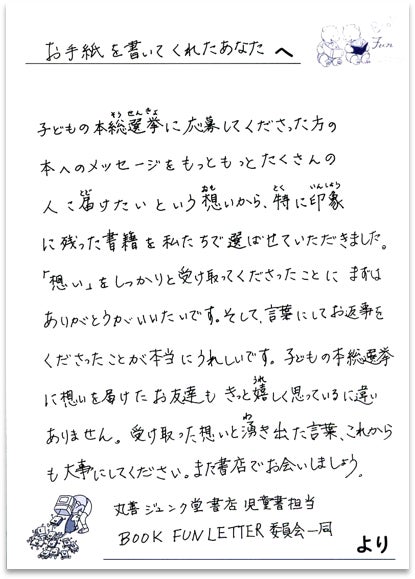 お手紙を書いてくれたあなたへ
Fun
子どもの本総選挙に応募してくださった方の
本へのメッセージをもっともっとたくさんの
人に届けたいという想いから、特に印象
に残った書籍を私たちで選ばせていただきました。
「想い」をしっかりと受け取ってくださったことに まずは
ありがとうがいいたいです。そして、言葉にしてお返事を
くださったことが本当にうれしいです。子どもの本総選挙
に想いを届けたお友達も きっと嬉しく思っているに違い
ありません。受け取った想いと湧き出た言葉、これから
も大事にしてください。また書店でお会いしましょう。
丸善ジュンク堂書店 児童書担当
BOOK FUN LETTER 委員会一同
より